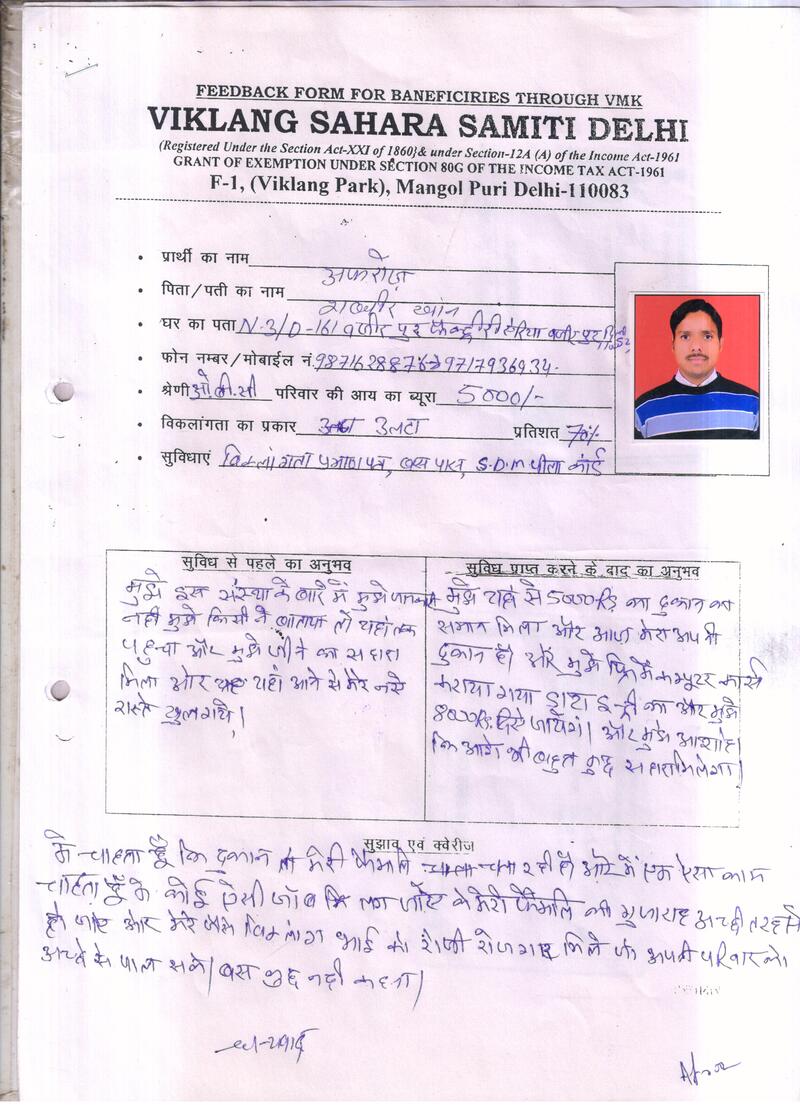 FEEDBACK FORM FOR BANEFICIRIES THROUGH VMK
VIKLANG SAHARA SAMITI DELHI
(Registered Under the Section Act-XXI of 1860}& under Section-12A (A) of the Income Act-1961
GRANT OF EXEMPTION UNDER SECTION 80G OF THE INCOME TAX ACT-1961
F-1, (Viklang Park), Mangol Puri Delhi-110083
• प्रार्थी का नाम अफरोज
• पिता/पती का नाम शब्बीर खान
• घर का पता N-3/D-161 वजीर पुर फैक्ट्री एरिया वजीर पुर
• फोन नम्बर/मोबाईल नं. 9871628876 9717936934.
• श्रेणी ओ.बी.सी परिवार की आय का ब्यूरा 5000/-
• विकलांगता का प्रकार उल्टा प्रतिशत 70%
• सुविधाएं विकलांगता प्रमाण पत्र, बस पास, S.D.M पीला कार्ड
सुविध से पहले का अनुभव
मुझे इस संस्था के बारे में मुझे
नही मुझे किसी ने बताया तो यहां तक
पहुचा और मुझे जीने का सहारा
मिला और यहां आने से मेरे नये
रास्ते खुल गये।
सुविध प्राप्त करने के वाद का अनुभव
मुझे यहां से 5000Rs का दुकान का
समान मिला और आज मेरा अपनी
दुकान है। और मुझे फ्रि में कम्पूटर कार्स
कराया गया डाटा इन्ट्री का और मुझे
8000Rs. दिये जायेंगे। और मुझे आशा है।
कि आगे भी बहुत कुछ सहारा मिलेगा।
सुझाव एवं क्वेरीज
मे चाहता हूँ कि दुकान तो मेरी फैमलि चला रही है। और मैं एक ऐसा काम
चाहता हूँ के कोई ऐसी जॉब मिल लग जाऐ के मेरी फैमलि का गुजाराह अच्छी तरह से
हो जाऐ और मेरे जैसे विकलांग भाई को रोजी रोजगार मिले जो अपनी परिवार को
अच्छे से पाल सके। बस कुछ नही कहना।
धन्यवाद